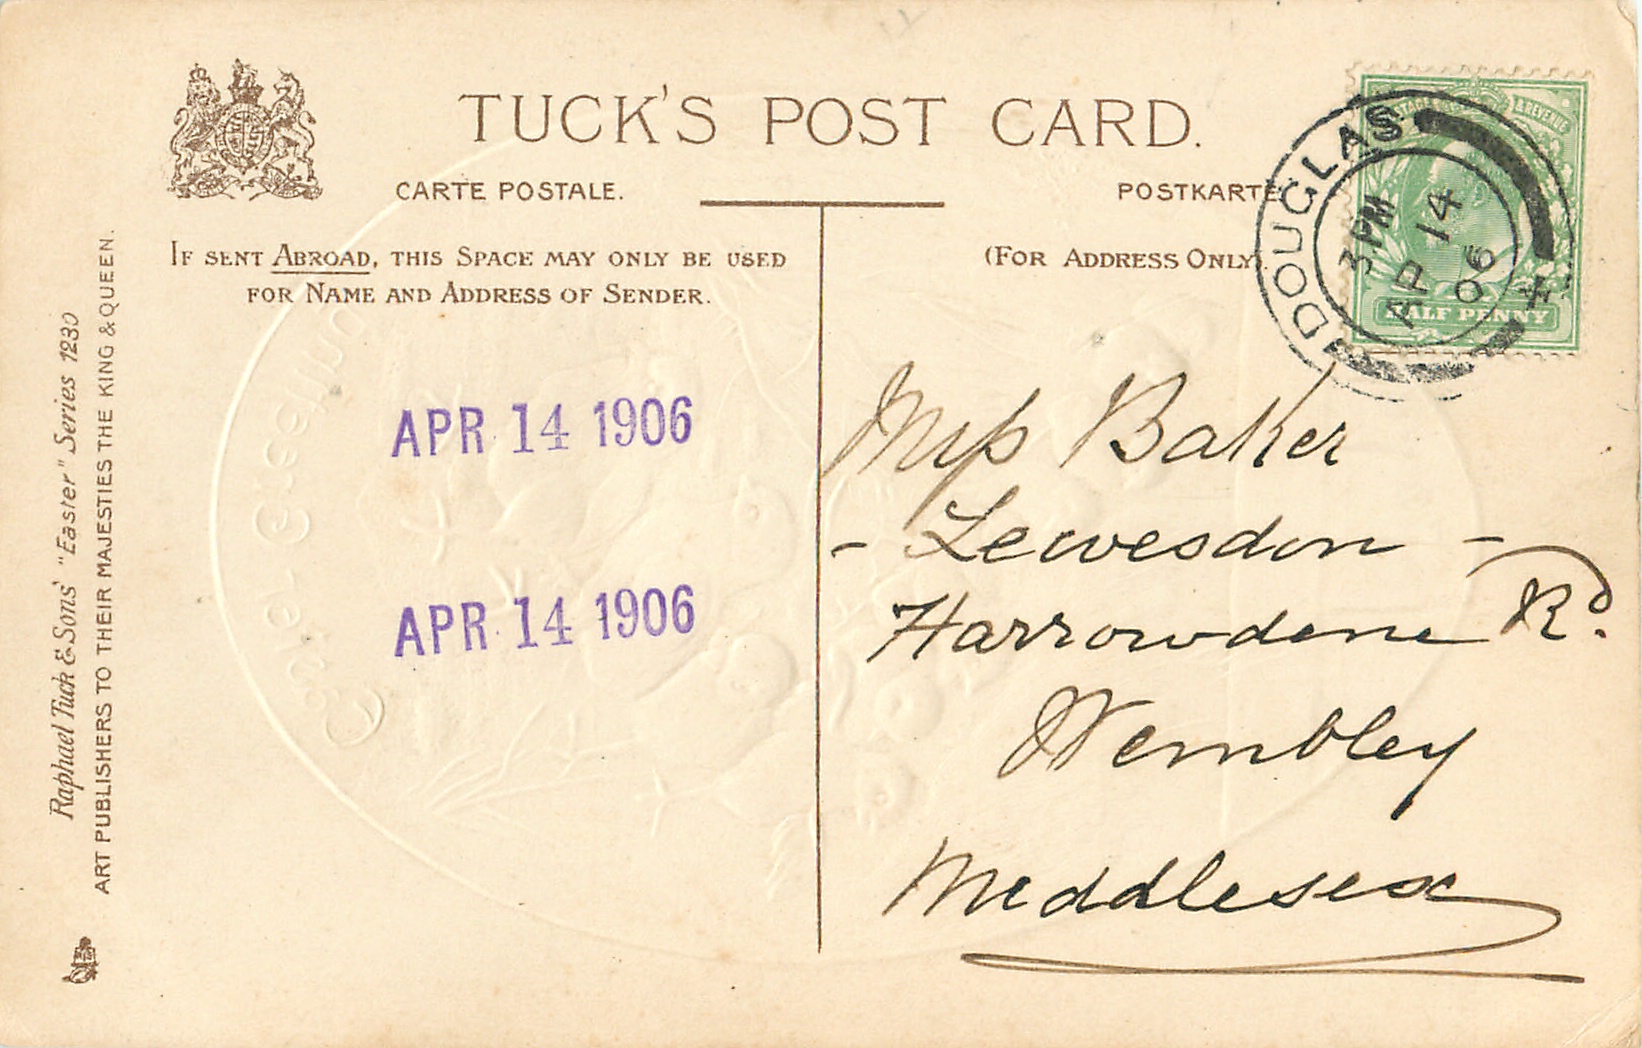 TUCK'S POST CARD.
CARTE POSTALE.
POSTKARTE
IF SENT ABROAD, THIS SPACE MAY ONLY BE USED
FOR NAME AND ADDRESS OF SENDER.
(FOR ADDRESS ONLY
POSTAGE & REVENUE
HALF PENNY
DOUGLAS
3 PM
AP 14
06
APR 14 1906
APR 14 1906
Miss Baker
- Lewesdon -
Harrowdene Rd.
Wembley
Middlesex
Raphael Tuck & Sons' "Easter" Series 1230
ART PUBLISHERS TO THEIR MAJESTIES THE KING & QUEEN.
Easter Greeting